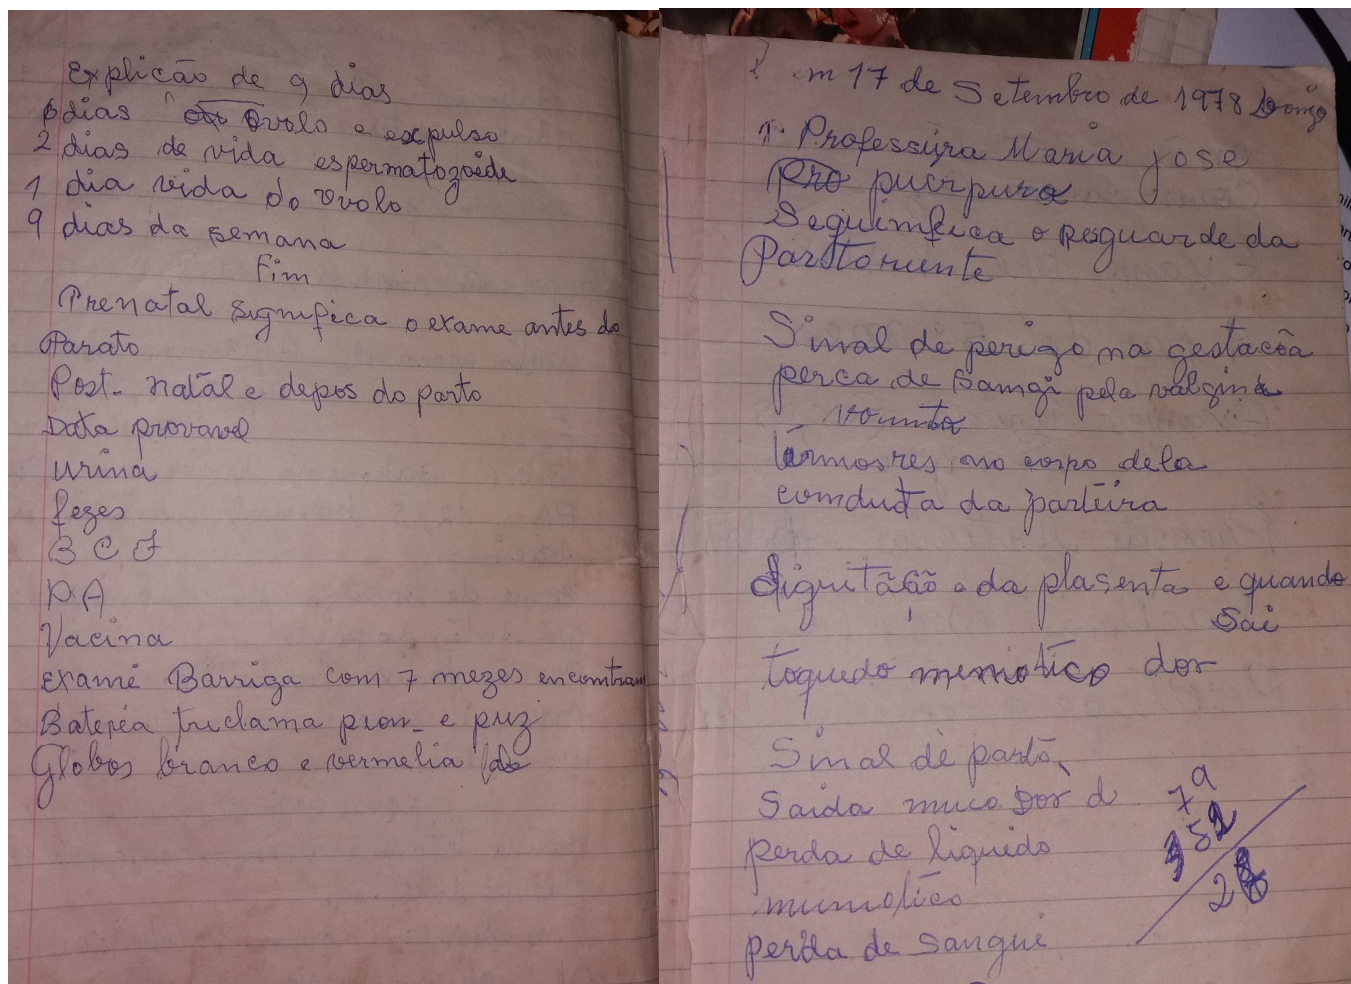 Explicão de 9 dias
6 dias Ovolo e expulso
2 dias de vida espermatozoide
1 dia vida do ovolo
9 dias da semana
Fim
Prenatal significa o exame antes do
Parato
Post- natal e depos do parto
Data provavel
urina
fezes
B C F
P A
Vacina
exame Barriga com 7 mezes encontram
Batereia triclama pion- e puz
Globos branco e vermelia
m 17 de Setembro de 1978
Professura Maria jose
Pro puerpura
Seguimfica o Resguarde da
Partorienta
Sinal de perigo na gestacôa
perca de Samgi pela valgina
vomito
no corpo dela
comduta da parteira
da plasenta e quando
Sai
toque do dor
Sinal de parto
Saida muco Dor d
perda de liquido
mumiotico
perda de sangui
79
352
28